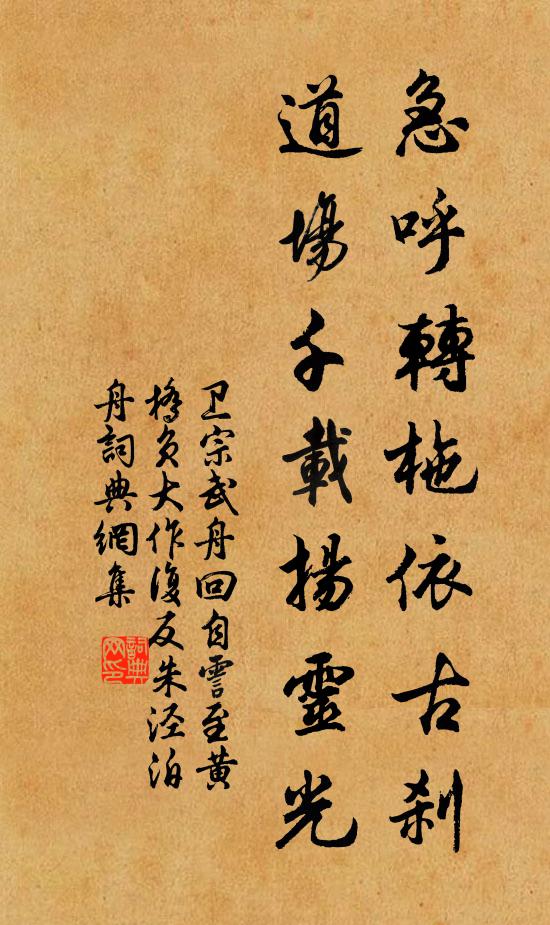 急呼轉柂依古刹
道場千載揚靈光
卫宗武舟回自霅至黄
橋负大作復反朱泾泊
舟詞典網集
詞典
网印